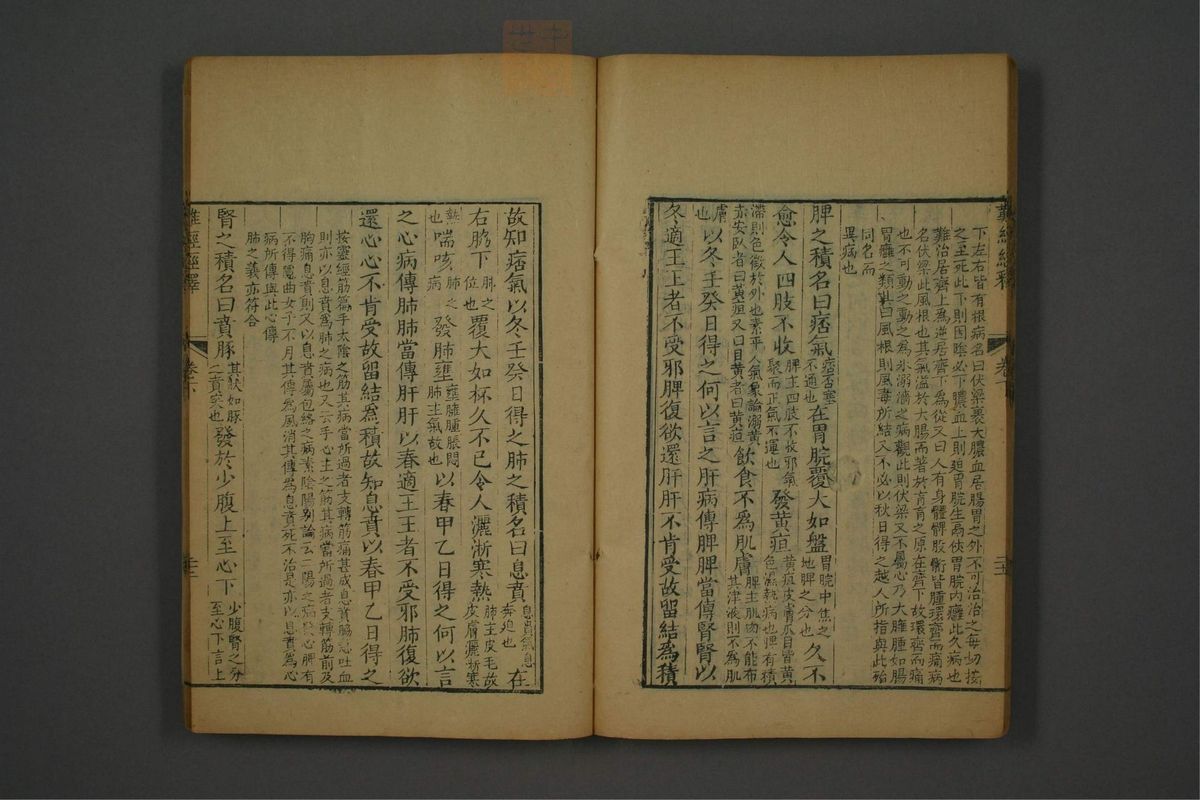 難經經釋
卷下
下左右皆有根病名曰伏梁裹大膿血居腸胃之外不可治治之每切按
之至死此下則因陰必下膿血上則廹胃脘生鬲俠胃脘內癰此久病也
難治居齊上為逆居齊下為從又曰人有身體髀股䯒皆腫環齊而痛病
名伏梁此風根也其氣溢於大腸而著於肓肓之原在齊下故環齊而痛
也不可動之動之為水溺濇之病觀此則伏梁又不屬心乃大癰腫如腸
胃癰之類其曰風根則風毒所結又不必以秋日得之越人所指與此殆
同名而
異病也
脾之積名曰痞氣痞否塞不通也在胃脘覆大如盤胃脘中焦之地脾之分也久不
愈令人四肢不收脾主四肢不收邪氣聚而正氣不運也發黃疸黃疸皮膚爪目皆黃色濕熱病也脾有積
滯則色徵於外也素平人氣象論溺黃赤安臥者曰黃疸又曰目黃者曰黃疸飲食不為肌膚脾主肌肉不能布其津液則不為肌
膚也以冬壬癸日得之何以言之肝病傳脾脾當傳腎腎以
冬適王王者不受邪脾復欲還肝肝不肯受故留結為積
故知痞氣以冬壬癸日得之肺之積名曰息賁息賁氣息奔迫也在
右脇下肺之位也覆大如杯久不已令人灑淅寒熱肺主皮毛故皮膚灑淅寒
熱也喘咳肺之病發肺壅壅臃腫脹悶肺主氣故也以春甲乙日得之何以言
之心病傳肺肺當傳肝肝以春適王王者不受邪肺復欲
還心心不肯受故留結為積故知息賁以春甲乙日得之
按靈經筋篇手太陰之筋其病當所過者支轉筋痛甚成息賁脇急吐血
則亦以息賁為肺之病也又云手心主之筋其病當所過者支轉筋前及
胸痛息賁則又以息賁屬包絡之病素陰陽別論云二陽之病發心脾有
不得隱曲女子不月其傳為風消其傳為息賁死不治是亦以息賁為心
病所傳與此心傳
肺之義亦符合
腎之積名曰賁豚其狀如豚之賁突也發於少腹上至心下少腹腎之分至心下言上
難經經釋
卷下